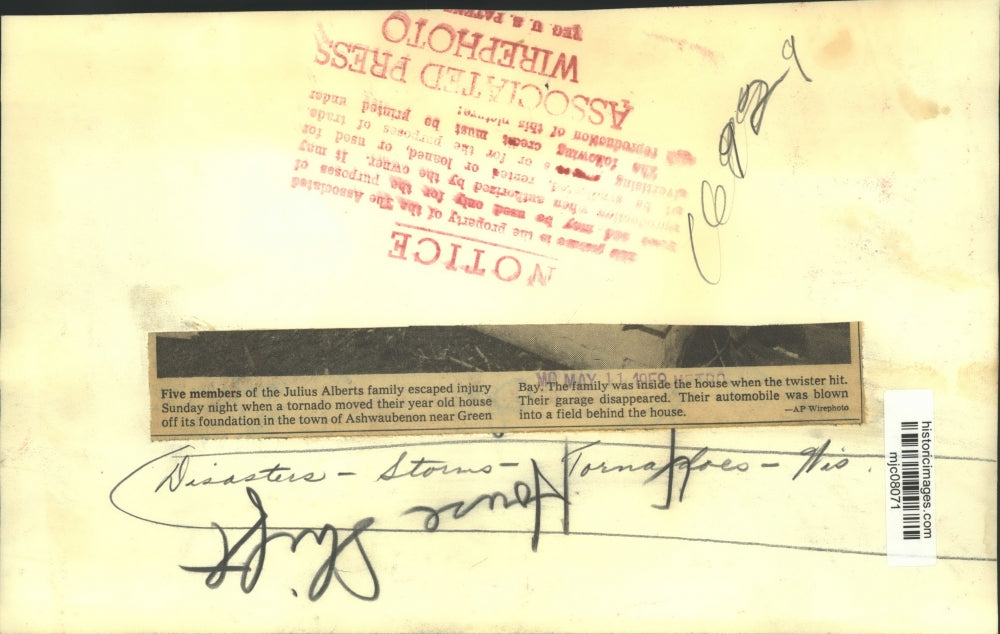 REG. U. S. PATENT
WIREPHOTO
ASSOCIATED PRESS
reproduction of this picture:
The following credit must be printed under
advertising or for the purposes of trade.
not be rented or loaned, or used for
when authorized by the owner. It may
and may be used only for the purposes of
is the property of the The Associated
NOTICE
MAY 11 1959 METRO
Five members of the Julius Alberts family escaped injury
Sunday night when a tornado moved their year old house
off its foundation in the town of Ashwaubenon near Green
Bay. The family was inside the house when the twister hit.
Their garage disappeared. Their automobile was blown
into a field behind the house.
—AP Wirephoto
Disasters - Storms - Tornadoes - Wis.
House
Shift
historicimages.com
mjc08071